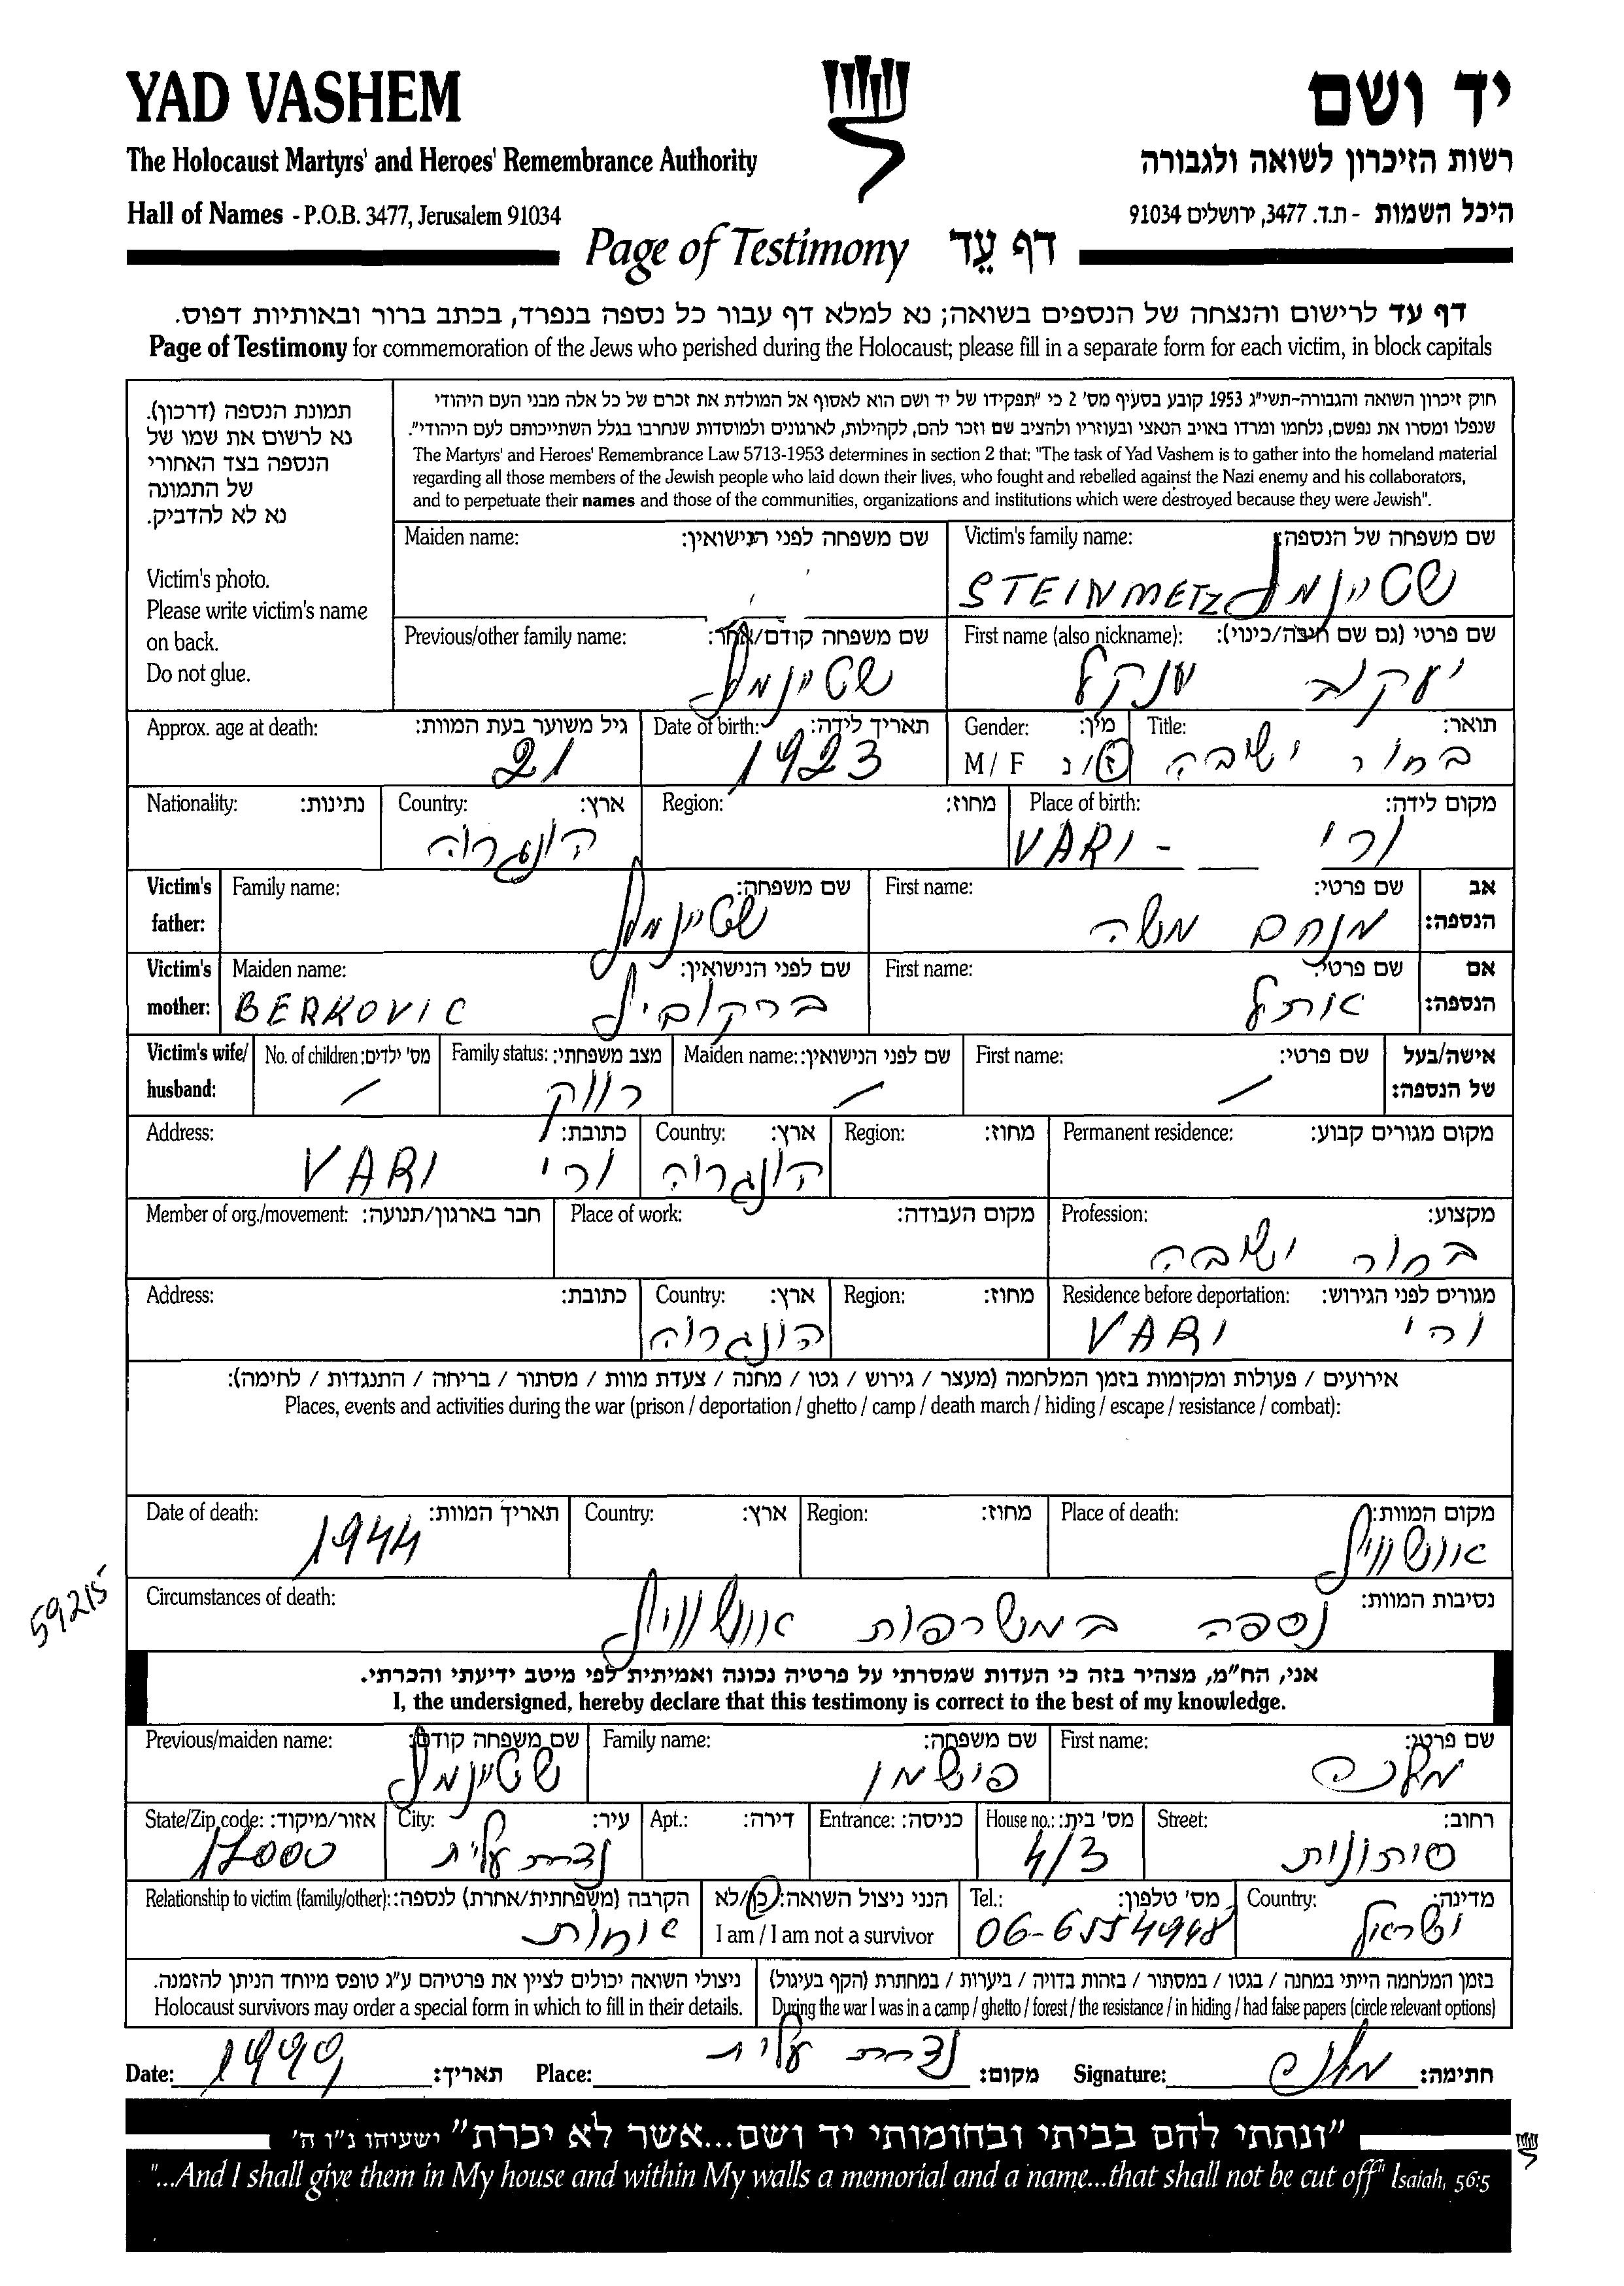 YAD VASHEM
יד ושם
The Holocaust Martyrs' and Heroes' Remembrance Authority
רשות הזיכרון לשואה ולגבורה
Hall of Names - P.O.B. 3477, Jerusalem 91034
היכל השמות - ת.ד. 3477, ירושלים 91034
Page of Testimony דף עֵד
דף עד לרישום והנצחה של הנספים בשואה; נא למלא דף עבור כל נספה בנפרד, בכתב ברור ובאותיות דפוס.
Page of Testimony for commemoration of the Jews who perished during the Holocaust; please fill in a separate form for each victim, in block capitals
תמונת הנספה (דרכון).
נא לרשום את שמו של
הנספה בצד האחורי
של התמונה
נא לא להדביק.
Victim's photo.
Please write victim's name
on back.
Do not glue.
חוק זיכרון השואה והגבורה-תשי"ג 1953 קובע בסעיף מס' 2 כי "תפקידו של יד ושם הוא לאסוף אל המולדת את זכרם של כל אלה מבני העם היהודי
שנפלו ומסרו את נפשם, נלחמו ומרדו באויב הנאצי ובעוזריו ולהציב שם וזכר להם, לקהילות, לארגונים ולמוסדות שנחרבו בגלל השתייכותם לעם היהודי".
The Martyrs' and Heroes' Remembrance Law 5713-1953 determines in section 2 that: "The task of Yad Vashem is to gather into the homeland material
regarding all those members of the Jewish people who laid down their lives, who fought and rebelled against the Nazi enemy and his collaborators,
and to perpetuate their names and those of the communities, organizations and institutions which were destroyed because they were Jewish".
Maiden name: שם משפחה לפני הנישואין:
Victim's family name: שם משפחה של הנספה:
STEINMETZ שטיינמץ
Previous/other family name: שם משפחה קודם/אחר:
שטיינמץ
First name (also nickname): שם פרטי (גם שם חיבה/כינוי):
יעקוב ענקל
Approx. age at death: גיל משוער בעת המוות:
21
Date of birth: תאריך לידה:
1923
Gender: מין:
M / F ז/נ
Title: תואר:
בחור ישיבה
Nationality: נתינות:
Country: ארץ:
הונגרוה
Region: מחוז:
Place of birth: מקום לידה:
VARI - ורי
Victim's father: אב הנספה:
Family name: שם משפחה:
שטיינמץ
First name: שם פרטי:
מנחם משה
Victim's mother: אם הנספה:
Maiden name: שם לפני הנישואין:
BERKOVIC ברקוביץ
First name: שם פרטי:
אותל
Victim's wife/ husband: אישה/בעל של הנספה:
No. of children: מס' ילדים:
/
Family status: מצב משפחתי:
רווק
Maiden name: שם לפני הנישואין:
/
First name: שם פרטי:
/
Address: כתובת:
VARI ורי
Country: ארץ:
הונגרוה
Region: מחוז:
Permanent residence: מקום מגורים קבוע:
Member of org./movement: חבר בארגון/תנועה:
Place of work: מקום העבודה:
Profession: מקצוע:
בחור ישיבה
Address: כתובת:
Country: ארץ:
הונגרוה
Region: מחוז:
Residence before deportation: מגורים לפני הגירוש:
VARI ורי
אירועים / פעולות ומקומות בזמן המלחמה (מעצר / גירוש / גטו / מחנה / צעדת מוות / מסתור / בריחה / התנגדות / לחימה):
Places, events and activities during the war (prison / deportation / ghetto / camp / death march / hiding / escape / resistance / combat):
Date of death: תאריך המוות:
1944
Country: ארץ:
Region: מחוז:
Place of death: מקום המוות:
אוושוויץ
59215
Circumstances of death: נסיבות המוות:
נספה במשרפות אוושוויץ
אני, הח"מ, מצהיר בזה כי העדות שמסרתי על פרטיה נכונה ואמיתית לפי מיטב ידיעתי והכרתי.
I, the undersigned, hereby declare that this testimony is correct to the best of my knowledge.
Previous/maiden name: שם משפחה קודם:
שטיינמץ
Family name: שם משפחה:
פישמן
First name: שם פרטי:
State/Zip code: אזור/מיקוד:
17000
City: עיר:
נצרת עלית
Apt.: דירה:
Entrance: כניסה:
House no.: מס' בית:
4/3
Street: רחוב:
סיתונית
Relationship to victim (family/other): הקרבה (משפחתית/אחרת) לנספה:
אחות
הנני ניצול השואה: כן/לא
I am / I am not a survivor
Tel.: מס' טלפון:
06-6554948
Country: מדינה:
ישראל
ניצולי השואה יכולים לציין את פרטיהם ע"ג טופס מיוחד הניתן להזמנה.
Holocaust survivors may order a special form in which to fill in their details.
בזמן המלחמה הייתי במחנה / בגטו / במסתור / בזהות בדויה / ביערות / במחתרת (הקף בעיגול)
During the war I was in a camp / ghetto / forest / the resistance / in hiding / had false papers (circle relevant options)
Date: 1999 תאריך:
Place: נצרת עלית מקום:
Signature: חתימה:
"ונתתי להם בביתי ובחומותי יד ושם...אשר לא יכרת" ישעיהו נ"ו ה'
"...And I shall give them in My house and within My walls a memorial and a name...that shall not be cut off" Isaiah, 56:5